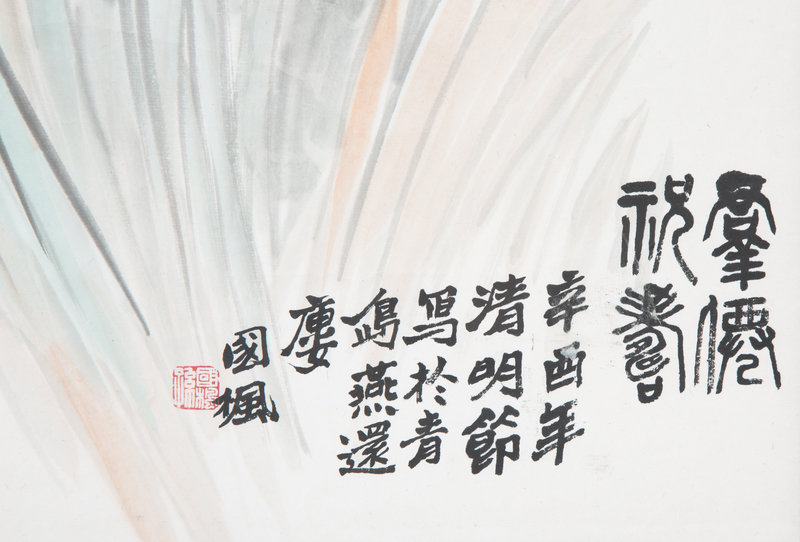 羣僊
祝壽
辛酉年
清明節
寫於青
島燕還
廔
國楓